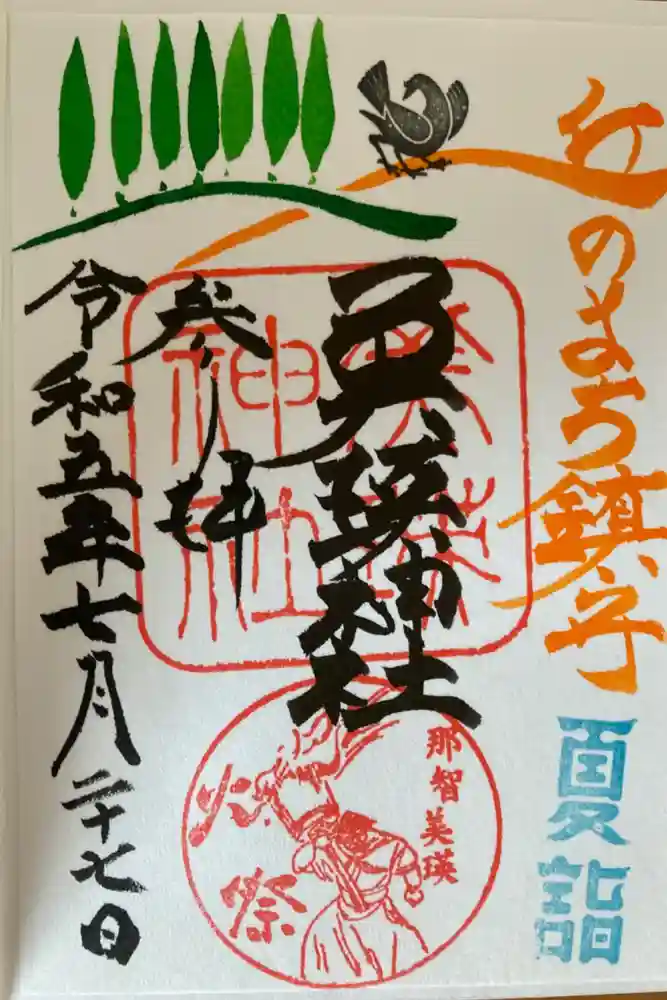 丘のまち鎮守
夏詣
美瑛神社
参拝
令和五年七月二十七日
美瑛
神社
那智美瑛
火祭